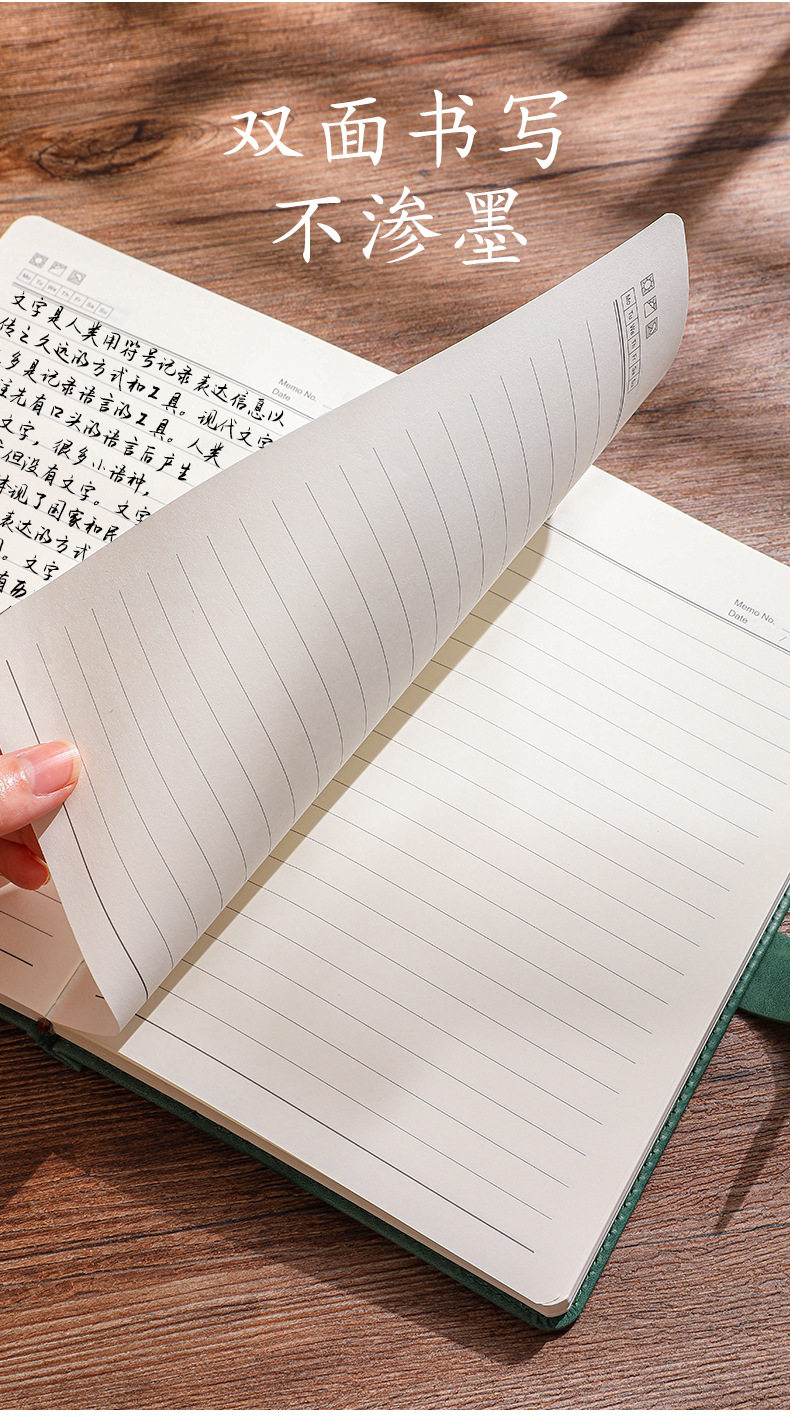 双面书写
不渗墨
Mo Tu We Th Fr Sa Su
文字是人类用符号记录表达信息以
传之久远的方式和工具。现代文字
多是记录语言的工具。人类
先有口头的语言后产生
文字，很多小语种，
但没有文字。文字
体现了国家和民
表达的方式
。文字
有历
Memo No.
Date
Mo Tu We Th Fr Sa Su
Memo No.
Date /